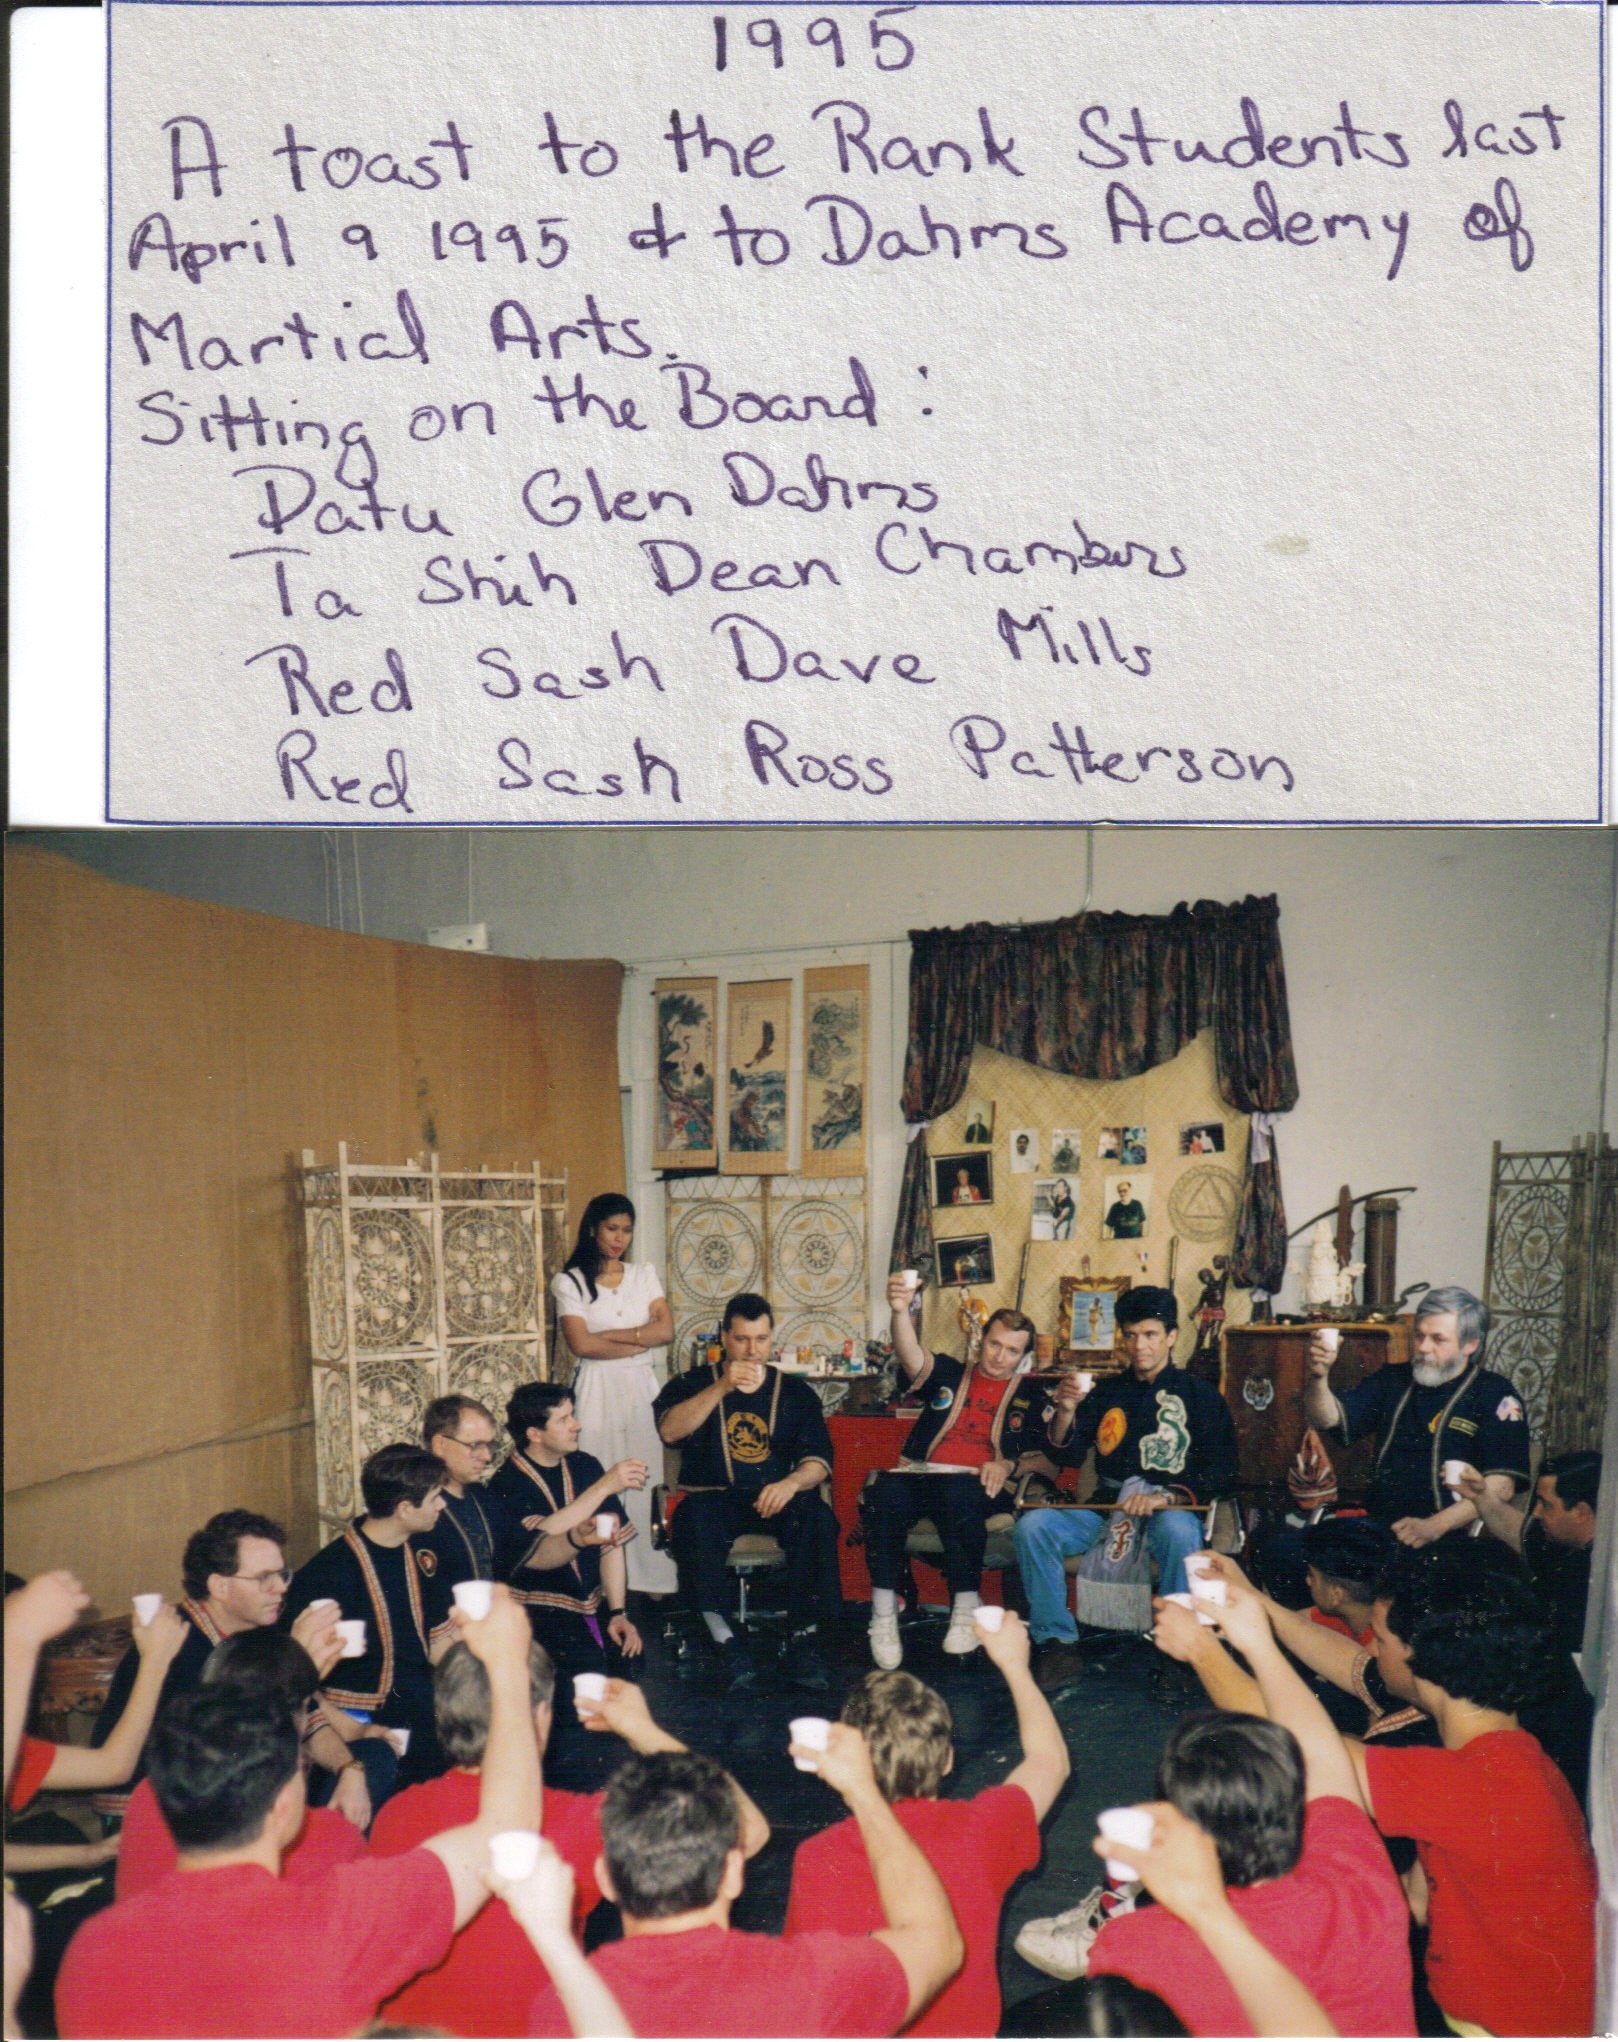 1995
A toast to the Rank Students last
April 9 1995 & to Dahms Academy of
Martial Arts.
Sitting on the Board :
Datu Glen Dahms
Ta Shih Dean Chambers
Red Sash Dave Mills
Red Sash Ross Patterson